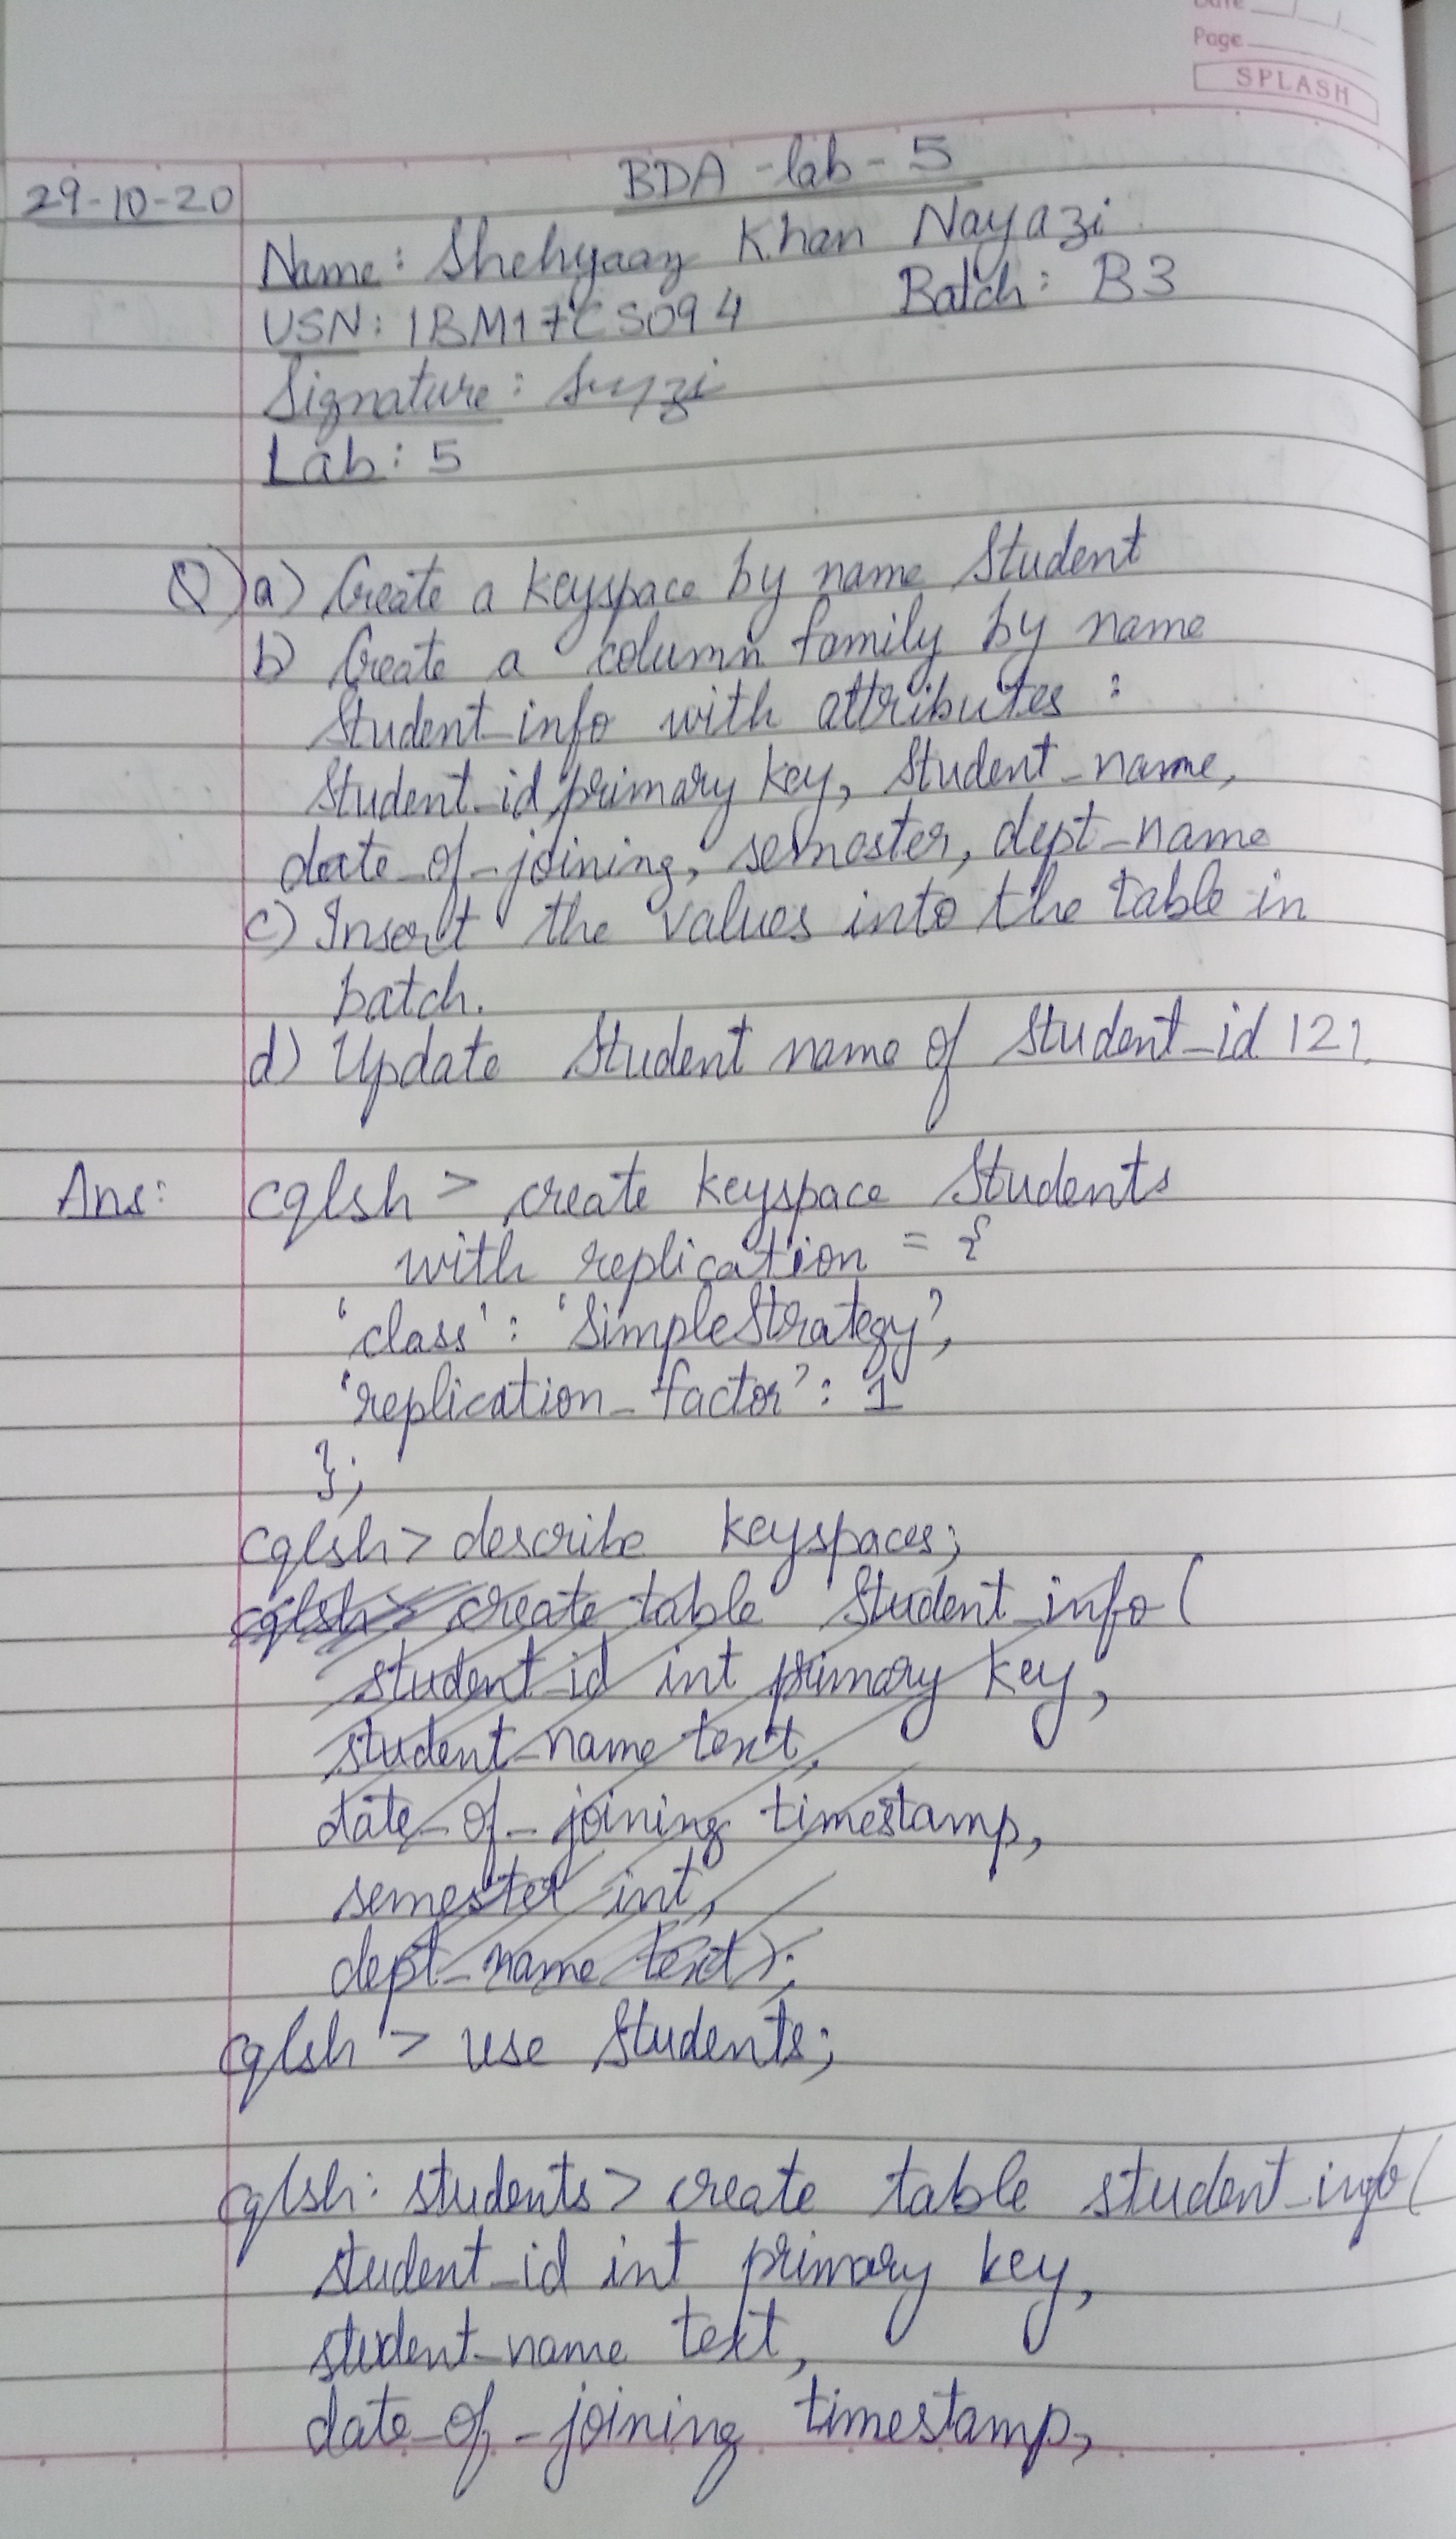 Date
Page
SPLASH
BDA - lab - 5
29-10-20
Name: Shehyaaz Khan Nayazi
USN: 1BM17CS094 Batch: B3
Signature:
Lab: 5
Q) a) Create a keyspace by name Student
b) Create a column family by name
Student_info with attributes :
Student_id primary key, Student_name,
date_of_joining, semester, dept_name
c) Insert the values into the table in
batch.
d) Update Student name of Student_id 121.
Ans: cqlsh > create keyspace Students
with replication = {
'class' : 'SimpleStrategy',
'replication_factor' : 1
};
cqlsh > describe keyspaces;
cqlsh > create table Student_info (
student_id int primary key,
student_name text,
date_of_joining timestamp,
semester int,
dept_name text);
cqlsh > use Students;
cqlsh: students > create table student_info (
student_id int primary key,
student_name text,
date_of_joining timestamp,